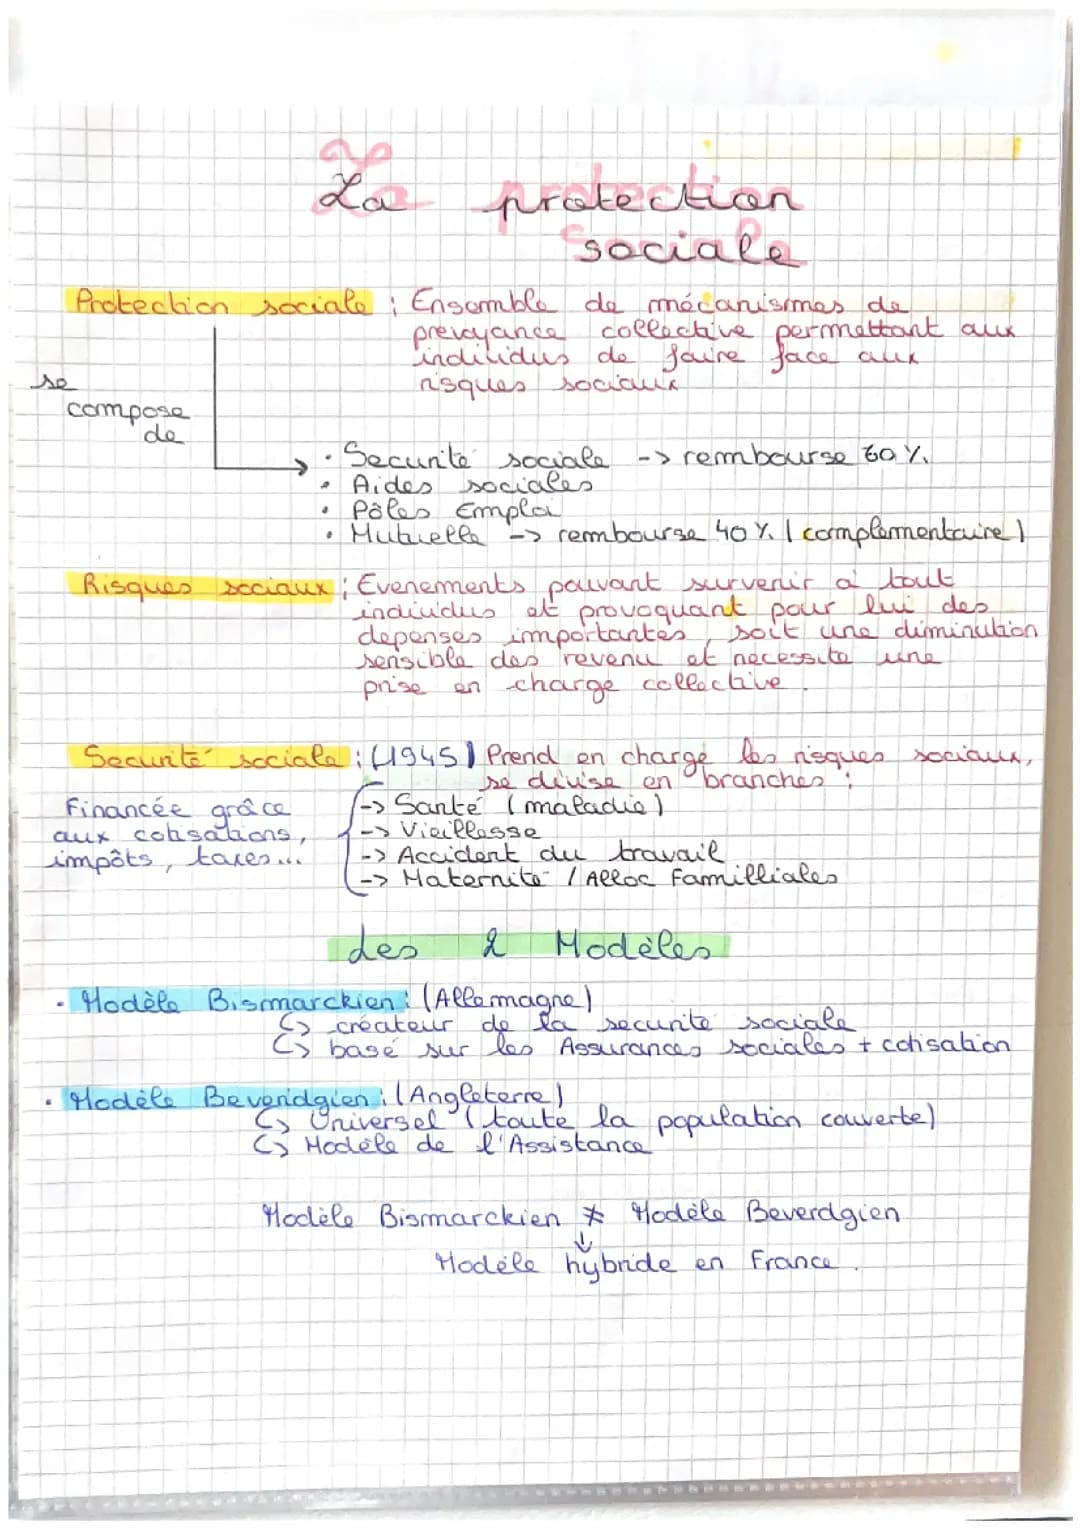 La protection
sociale
Protection sociale : Ensemble de mécanismes de
prevoyance collective permettant aux
individus de faire face aux
risques sociaux
se
compose
de
• Securité sociale -> rembourse 60 %.
• Aides sociales
• Pôles Emploi
• Mutuelle -> rembourse 40 % (complementaire)
Risques sociaux : Evenements pouvant survenir à tout
individus et provoquant pour lui des
depenses importantes, soit une diminution
sensible des revenu et necessite une
prise en charge collective.
Securité sociale : (1945) Prend en charge les risques sociaux,
se divise en branches :
Financée grâce
aux cotisations,
impôts, taxes...
-> Santé (maladie)
-> Vieillesse
-> Accident du travail
-> Maternité / Alloc Familliales
Les 2 Modèles
• Modèle Bismarckien : (Allemagne)
↳ créateur de la securité sociale
↳ basé sur les Assurances sociales + cotisation
• Modèle Beveridgien : (Angleterre)
↳ Universel (toute la population couverte)
↳ Modèle de l'Assistance
Modèle Bismarckien ≠ Modèle Beverdgien
↓
Modèle hybride en France.